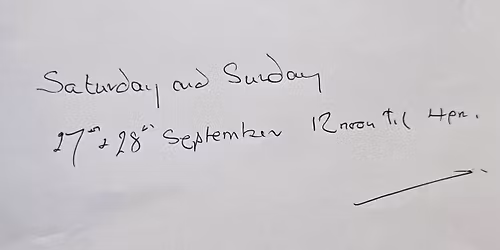 Saturday and Sunday
27th & 28th September 12 noon til 4pm.